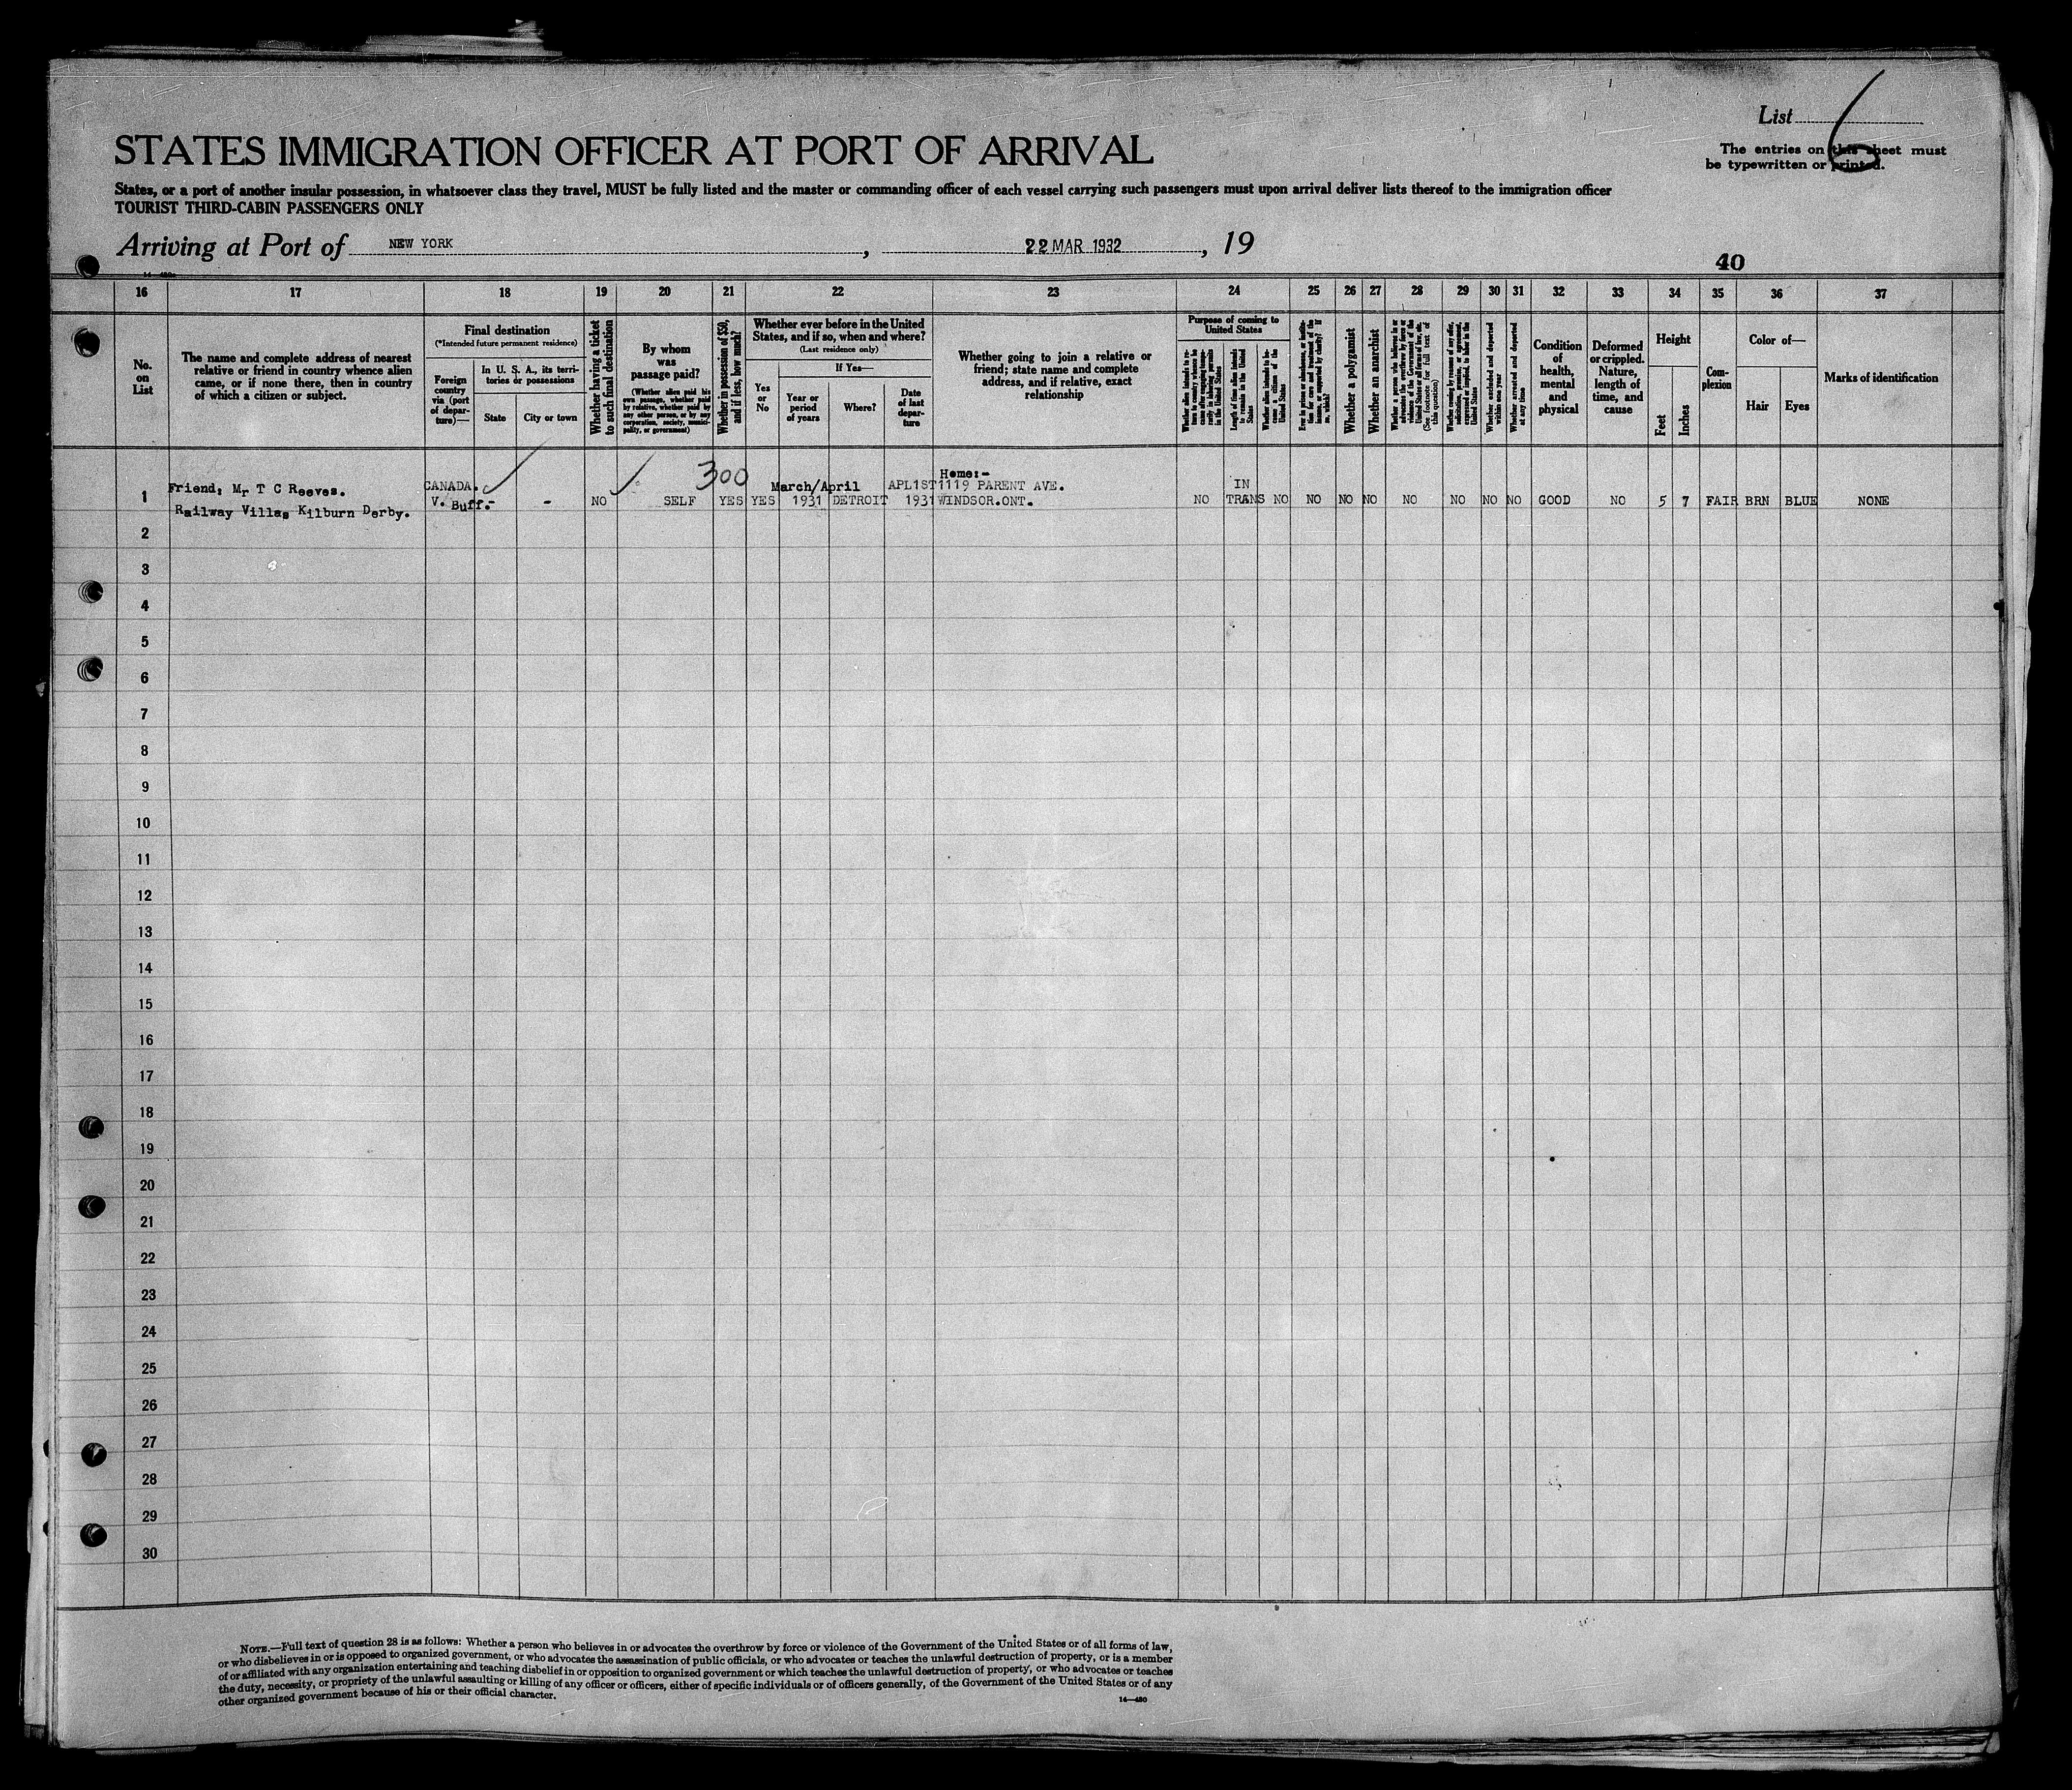 List 6
STATES IMMIGRATION OFFICER AT PORT OF ARRIVAL
The entries on this sheet must
be typewritten or printed.
States, or a port of another insular possession, in whatsoever class they travel, MUST be fully listed and the master or commanding officer of each vessel carrying such passengers must upon arrival deliver lists thereof to the immigration officer
TOURIST THIRD-CABIN PASSENGERS ONLY
Arriving at Port of NEW YORK, 22 MAR 1932, 19
40
16 17 18 19 20 21 22 23 24 25 26 27 28 29 30 31 32 33 34 35 36 37
No.
on
List
The name and complete address of nearest
relative or friend in country whence alien
came, or if none there, then in country
of which a citizen or subject.
Final destination
(*Intended future permanent residence)
Foreign
country
via (port
of depar-
ture)—
In U. S. A., its terri-
tories or possessions
State
City or town
Whether having a ticket
to such final destination
By whom
was
passage paid?
(Whether alien paid his
own passage, whether paid
by relative, whether paid by
any other person, or by any
corporation, society, munici-
pality, or government)
Whether in possession of $50,
and if less, how much?
Whether ever before in the United
States, and if so, when and where?
(Last residence only)
Yes
or
No
If Yes—
Year or
period
of years
Where?
Date
of last
depar-
ture
Whether going to join a relative or
friend; state name and complete
address, and if relative, exact
relationship
Purpose of coming to
United States
Whether alien intends to re-
turn to country whence he
came after engaging tempo-
rarily in laboring pursuits
in the United States
Length of time alien intends
to remain in the United
States
Whether alien intends to be-
come a citizen of the
United States
Whether a polygamist
Whether an anarchist
Whether a person who believes in or
advocates the overthrow by force or
violence of the Government of the
United States or all forms of law, etc.
(See footnote for full text of
this question)
Whether coming by reasons of any offer,
solicitation, promise, or agreement,
expressed or implied, to labor in the
United States
Whether excluded and deported
within one year
Whether arrested and deported
at any time
Condition
of
health,
mental
and
physical
Deformed
or crippled.
Nature,
length of
time, and
cause
Height
Feet
Inches
Com-
plexion
Color of—
Hair
Eyes
Marks of identification
300
Home:-
Friend: Mr T C Reeves. CANADA. March/April APL1ST 1119 PARENT AVE. IN
1 V. Buff.- - NO SELF YES YES 1931 DETROIT 1931 WINDSOR.ONT. NO TRANS NO NO NO NO NO NO NO NO GOOD NO 5 7 FAIR BRN BLUE NONE
Railway Villas Kilburn Derby.
2
3
4
5
6
7
8
9
10
11
12
13
14
15
16
17
18
19
20
21
22
23
24
25
26
27
28
29
30
NOTE.—Full text of question 28 is as follows: Whether a person who believes in or advocates the overthrow by force or violence of the Government of the United States or of all forms of law,
or who disbelieves in or is opposed to organized government, or who advocates the assassination of public officials, or who advocates or teaches the unlawful destruction of property, or is a member
of or affiliated with any organization entertaining and teaching disbelief in or opposition to organized government or which teaches the unlawful destruction of property, or who advocates or teaches
the duty, necessity, or propriety of the unlawful assaulting or killing of any officer or officers, either of specific individuals or of officers generally, of the Government of the United States or of any
other organized government because of his or their official character.
14—480